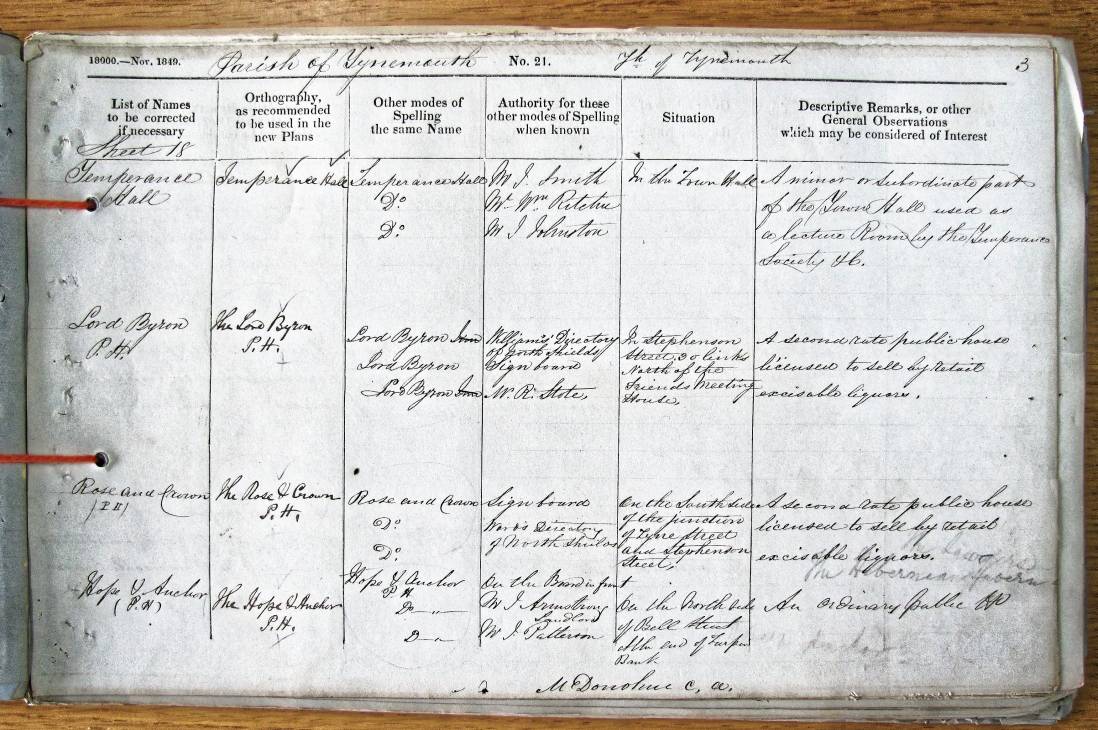 18000.—Nov. 1849. Parish of Tynemouth No. 21. of Tynemouth 3
List of Names to be corrected if necessary
Orthography, as recommended to be used in the new Plans
Other modes of Spelling the same Name
Authority for these other modes of Spelling when known
Situation
Descriptive Remarks, or other General Observations which may be considered of Interest
Sheet 18
Temperance Hall
Temperance Hall
Temperance Hall
Do
Do
Mr J. Smith
Mr Wm Ritchie
Mr J Johnston
In the Town Hall
A minor or subordinate part
of the Town Hall used as
a lecture Room by the Temperance
Society &c.
Lord Byron
P. H.
The Lord Byron
P. H.
Lord Byron Inn
Lord Byron
Lord Byron Inn
William's Directory
of North Shields
Sign board
Mr. R. Stote,
In Stephenson
Street, 30 links
North of the
Friends Meeting
House,
A second rate public house
licensed to sell by retail
excisable liquors.
Rose and Crown
(P H)
The Rose & Crown
P. H.
Rose and Crown
Do
Do
Sign board
Ward's Directory
of North Shields
On the South side
of the junction
of Tyne Street
and Stephenson
Street,
A second rate public house
licensed to sell by retail
excisable liquors.
The Hibernian Tavern
Hope & Anchor
(P. H)
The Hope & Anchor
P. H.
Hope & Anchor
P H
Do
Do
On the Board in front
Mr J. Armstrong
Landlord
Mr J. Patterson
On the North side
of Bell Street
at the end of
Bank
An ordinary public H
McDonohue C. A.